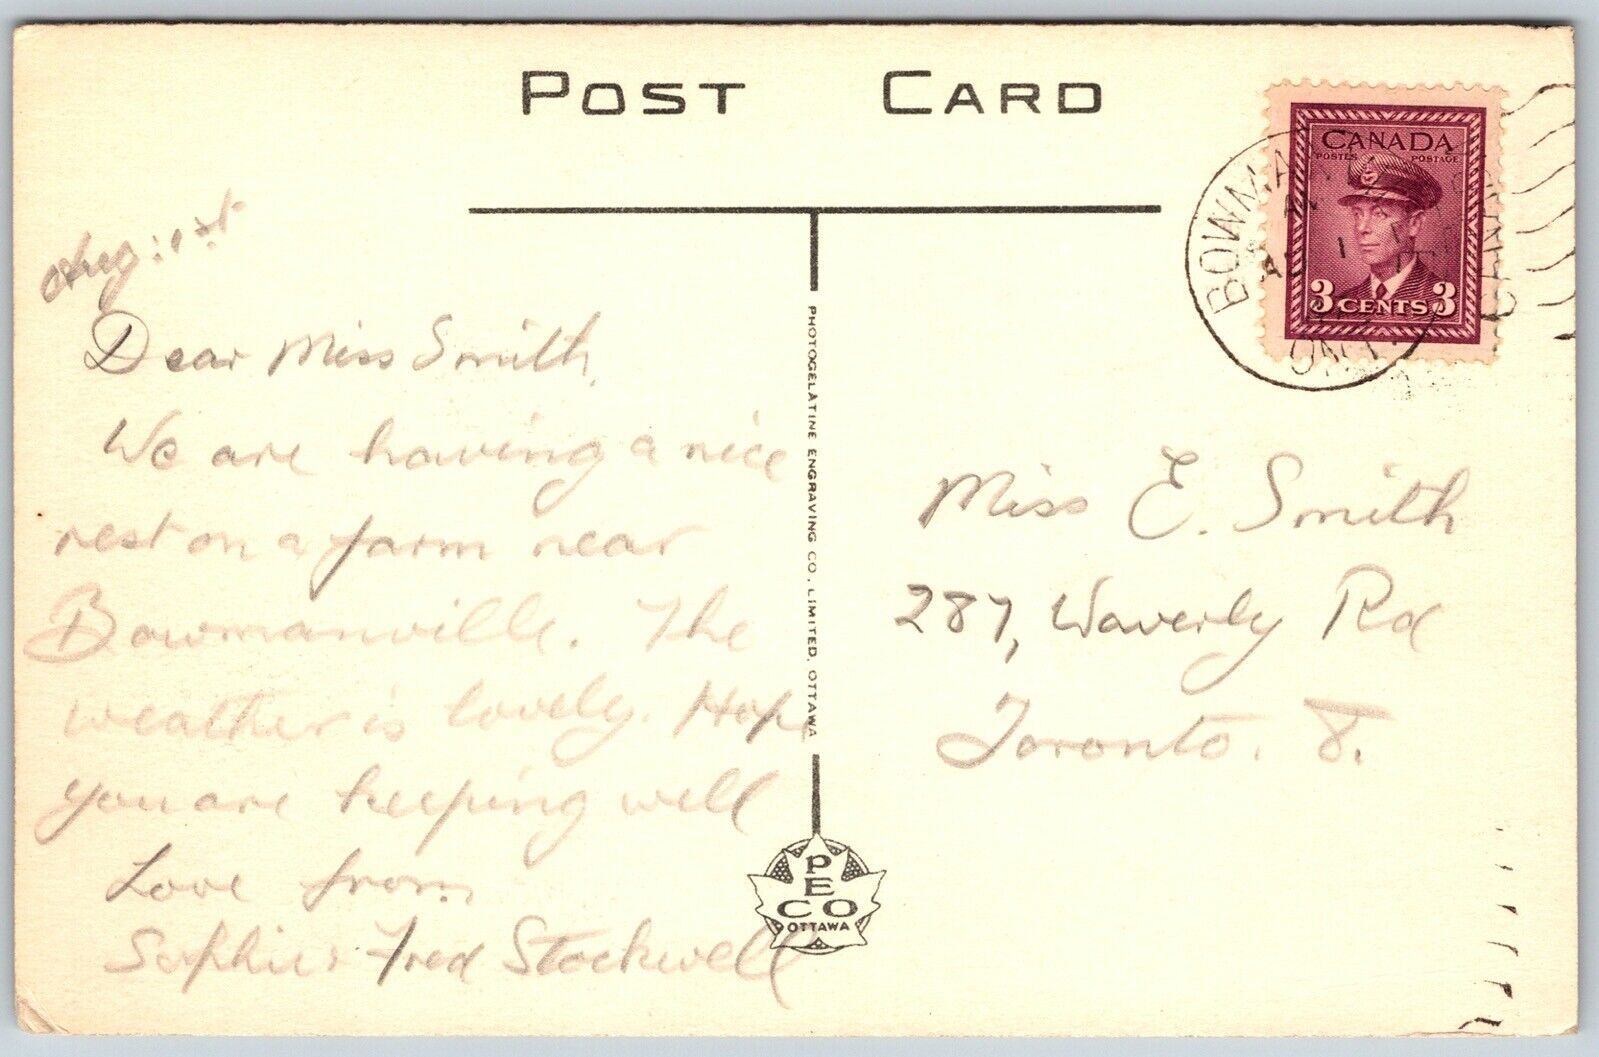 POST CARD
CANADA
POSTES POSTAGE
3 CENTS 3
BOWMAN
ONT.
Aug: 1st
Dear Miss Smith,
We are having a nice
rest on a farm near
Bowmanville. The
weather is lovely. Hope
you are keeping well
Love from
Sophie & Fred Stockwell
PHOTOGELATINE ENGRAVING CO., LIMITED, OTTAWA
PECO
OTTAWA
Miss E. Smith
287, Waverly Rd
Toronto. 8.